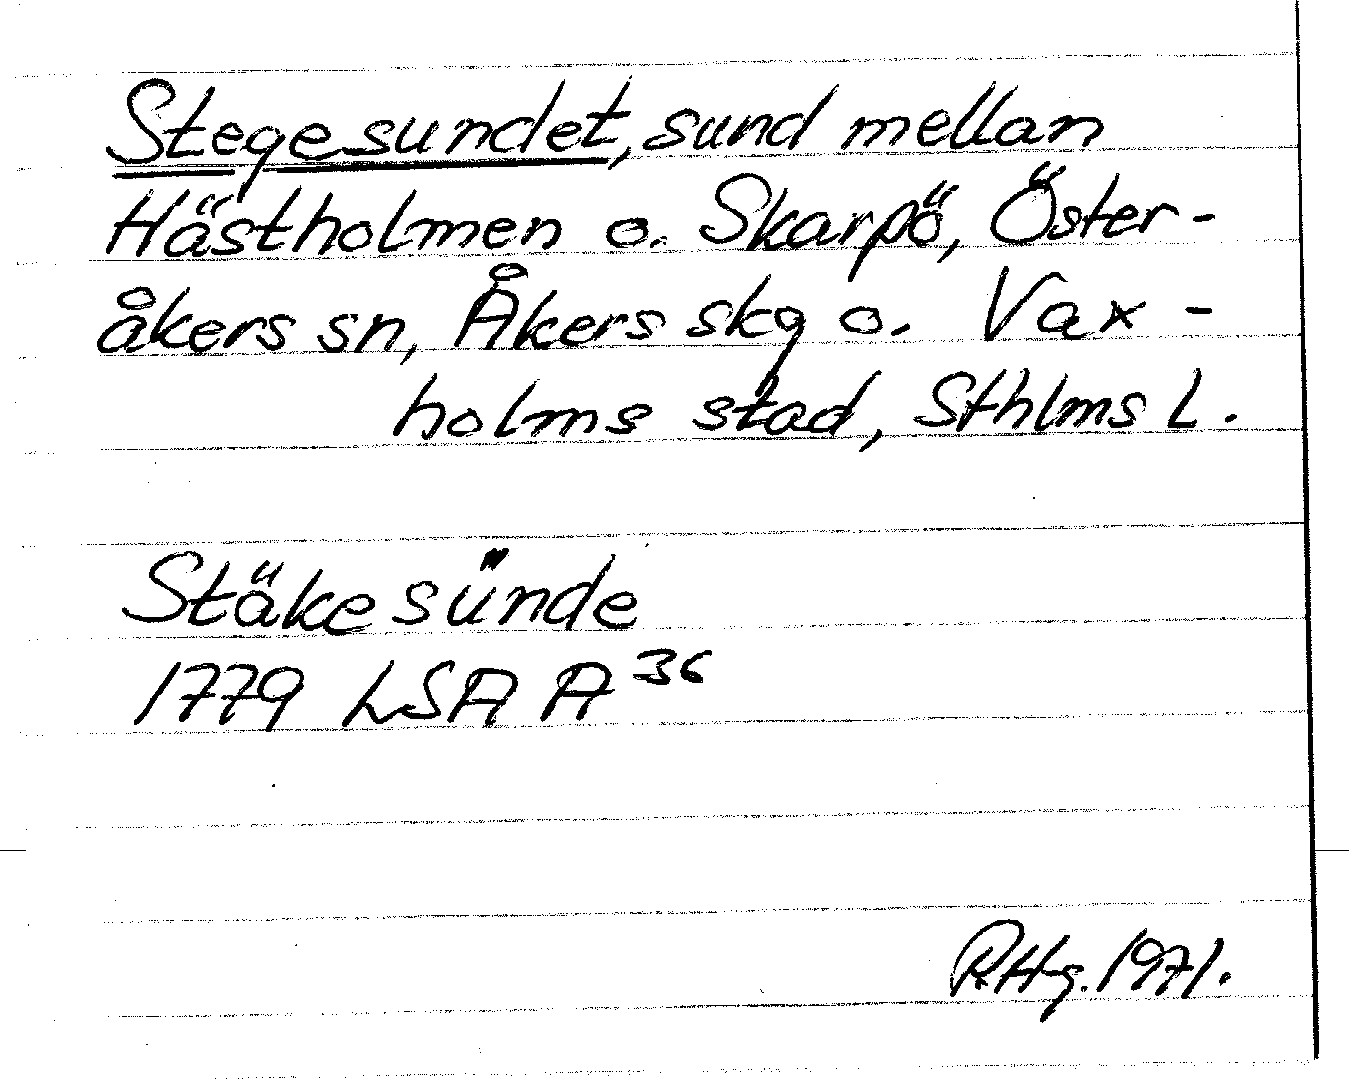 Stegesundet, sund mellan
Hästholmen o. Skarpö, Öster-
åkers sn, Åkers skg o. Vax-
holms stad, Sthlms L.
Stäkesünde
1779 LSA A 36
R.Hg. 1971.